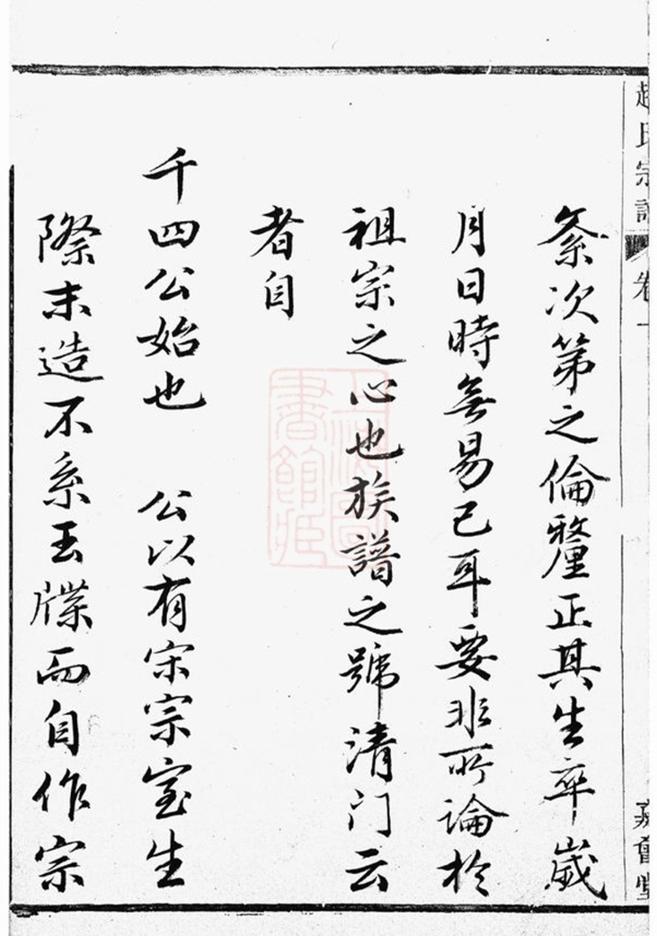 趙氏宗譜 卷一 嘉會堂
紊次第之倫釐正其生卒歲
月日時無易已耳要非所論於
祖宗之心也族譜之號清门云
者自
千四公始也 公以有宋宗室生
際末造不系玉牒而自作宗